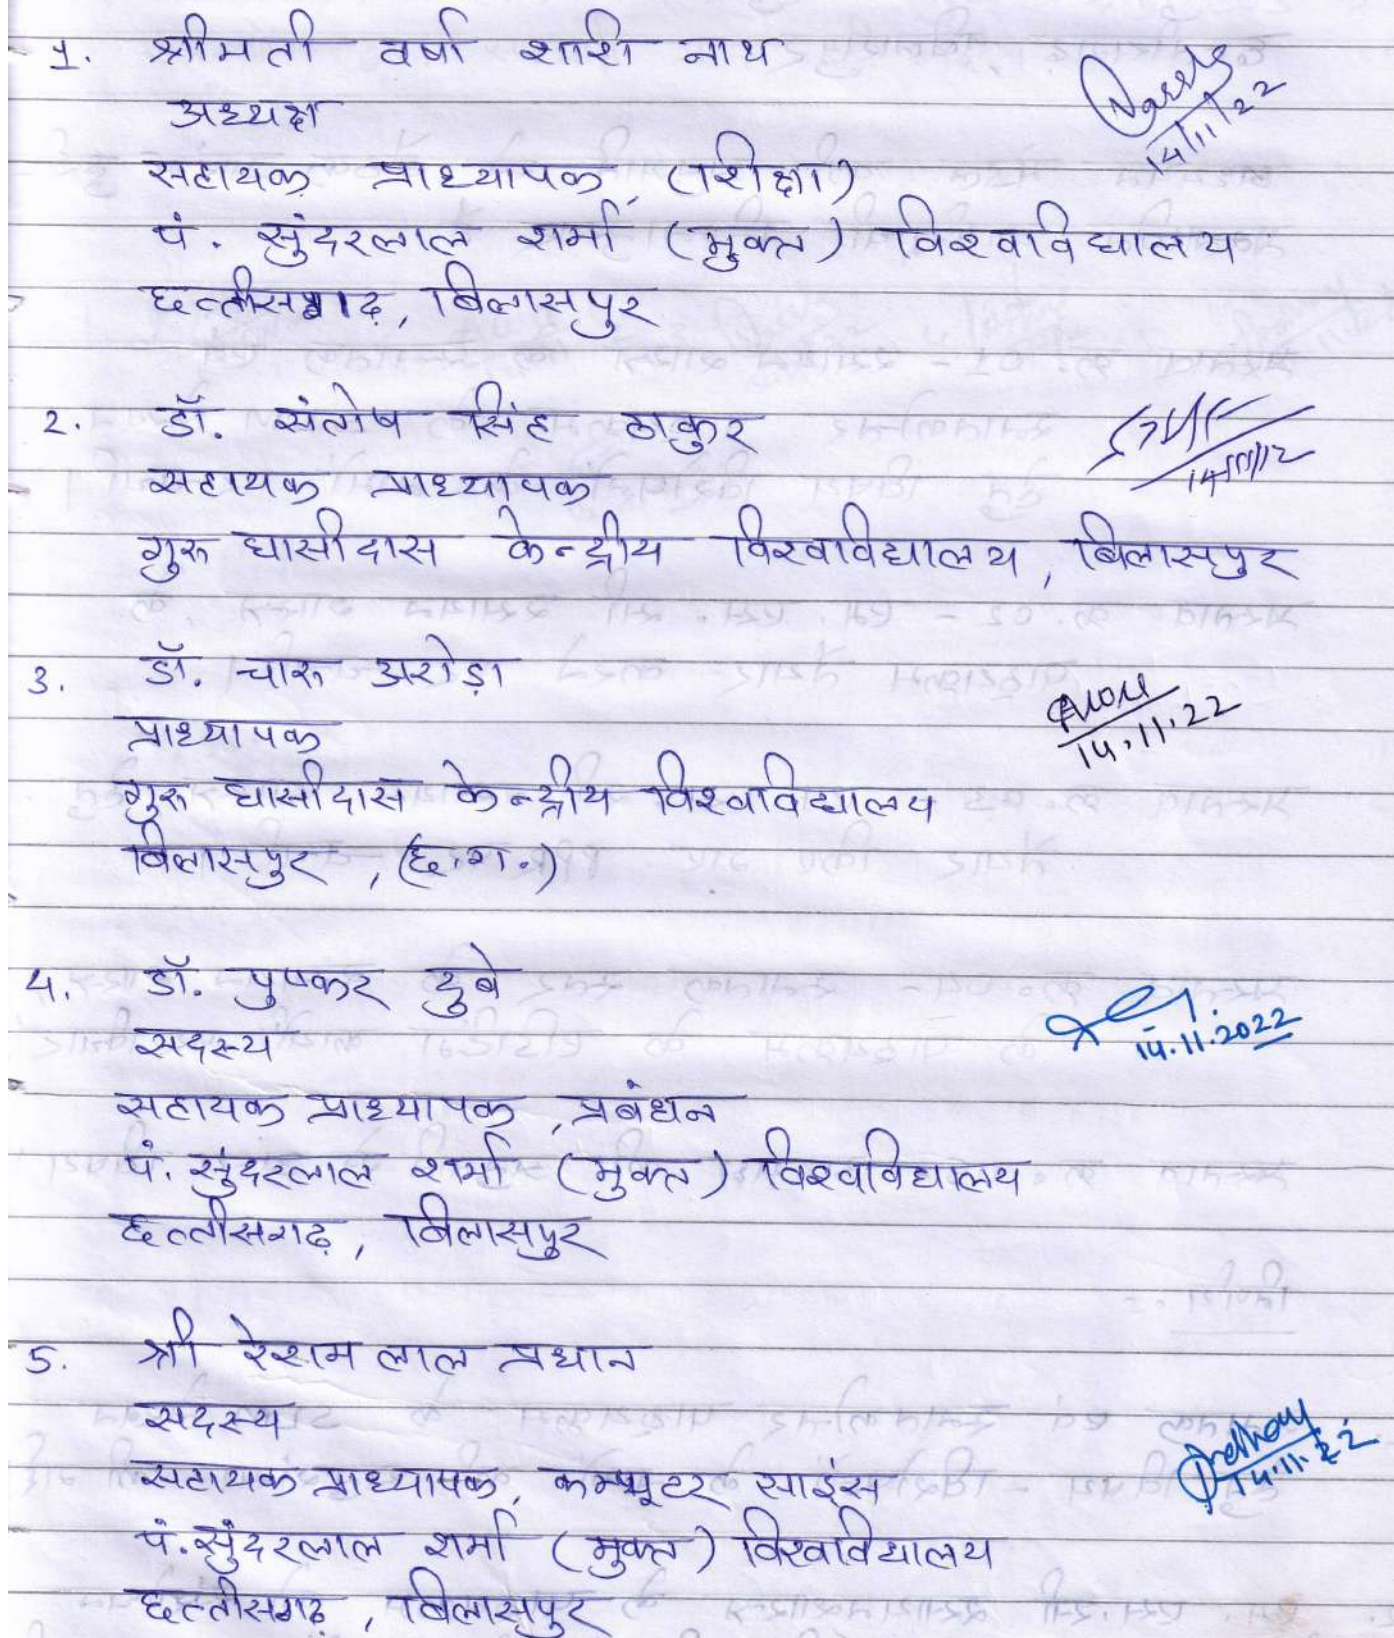 1. श्रीमती वर्षा शशि नाथ
अध्यक्ष
सहायक प्राध्यापक, (शिक्षा)
पं. सुंदरलाल शर्मा (मुक्त) विश्वविद्यालय
छत्तीसगढ़, बिलासपुर
14/11/22
2. डॉ. संतोष सिंह ठाकुर
सहायक प्राध्यापक
गुरू घासीदास केन्द्रीय विश्वविद्यालय, बिलासपुर
3. डॉ. चारू अरोड़ा
प्राध्यापक
गुरू घासीदास केन्द्रीय विश्वविद्यालय
बिलासपुर, (छ.ग.)
14.11.22
4. डॉ. पुष्कर दुबे
सदस्य
14.11.2022
सहायक प्राध्यापक, प्रबंधन
पं. सुंदरलाल शर्मा (मुक्त) विश्वविद्यालय
छत्तीसगढ़, बिलासपुर
5. श्री रेशम लाल प्रधान
सदस्य
सहायक प्राध्यापक, कम्प्यूटर साइंस
14.11.22
पं. सुंदरलाल शर्मा (मुक्त) विश्वविद्यालय
छत्तीसगढ़, बिलासपुर